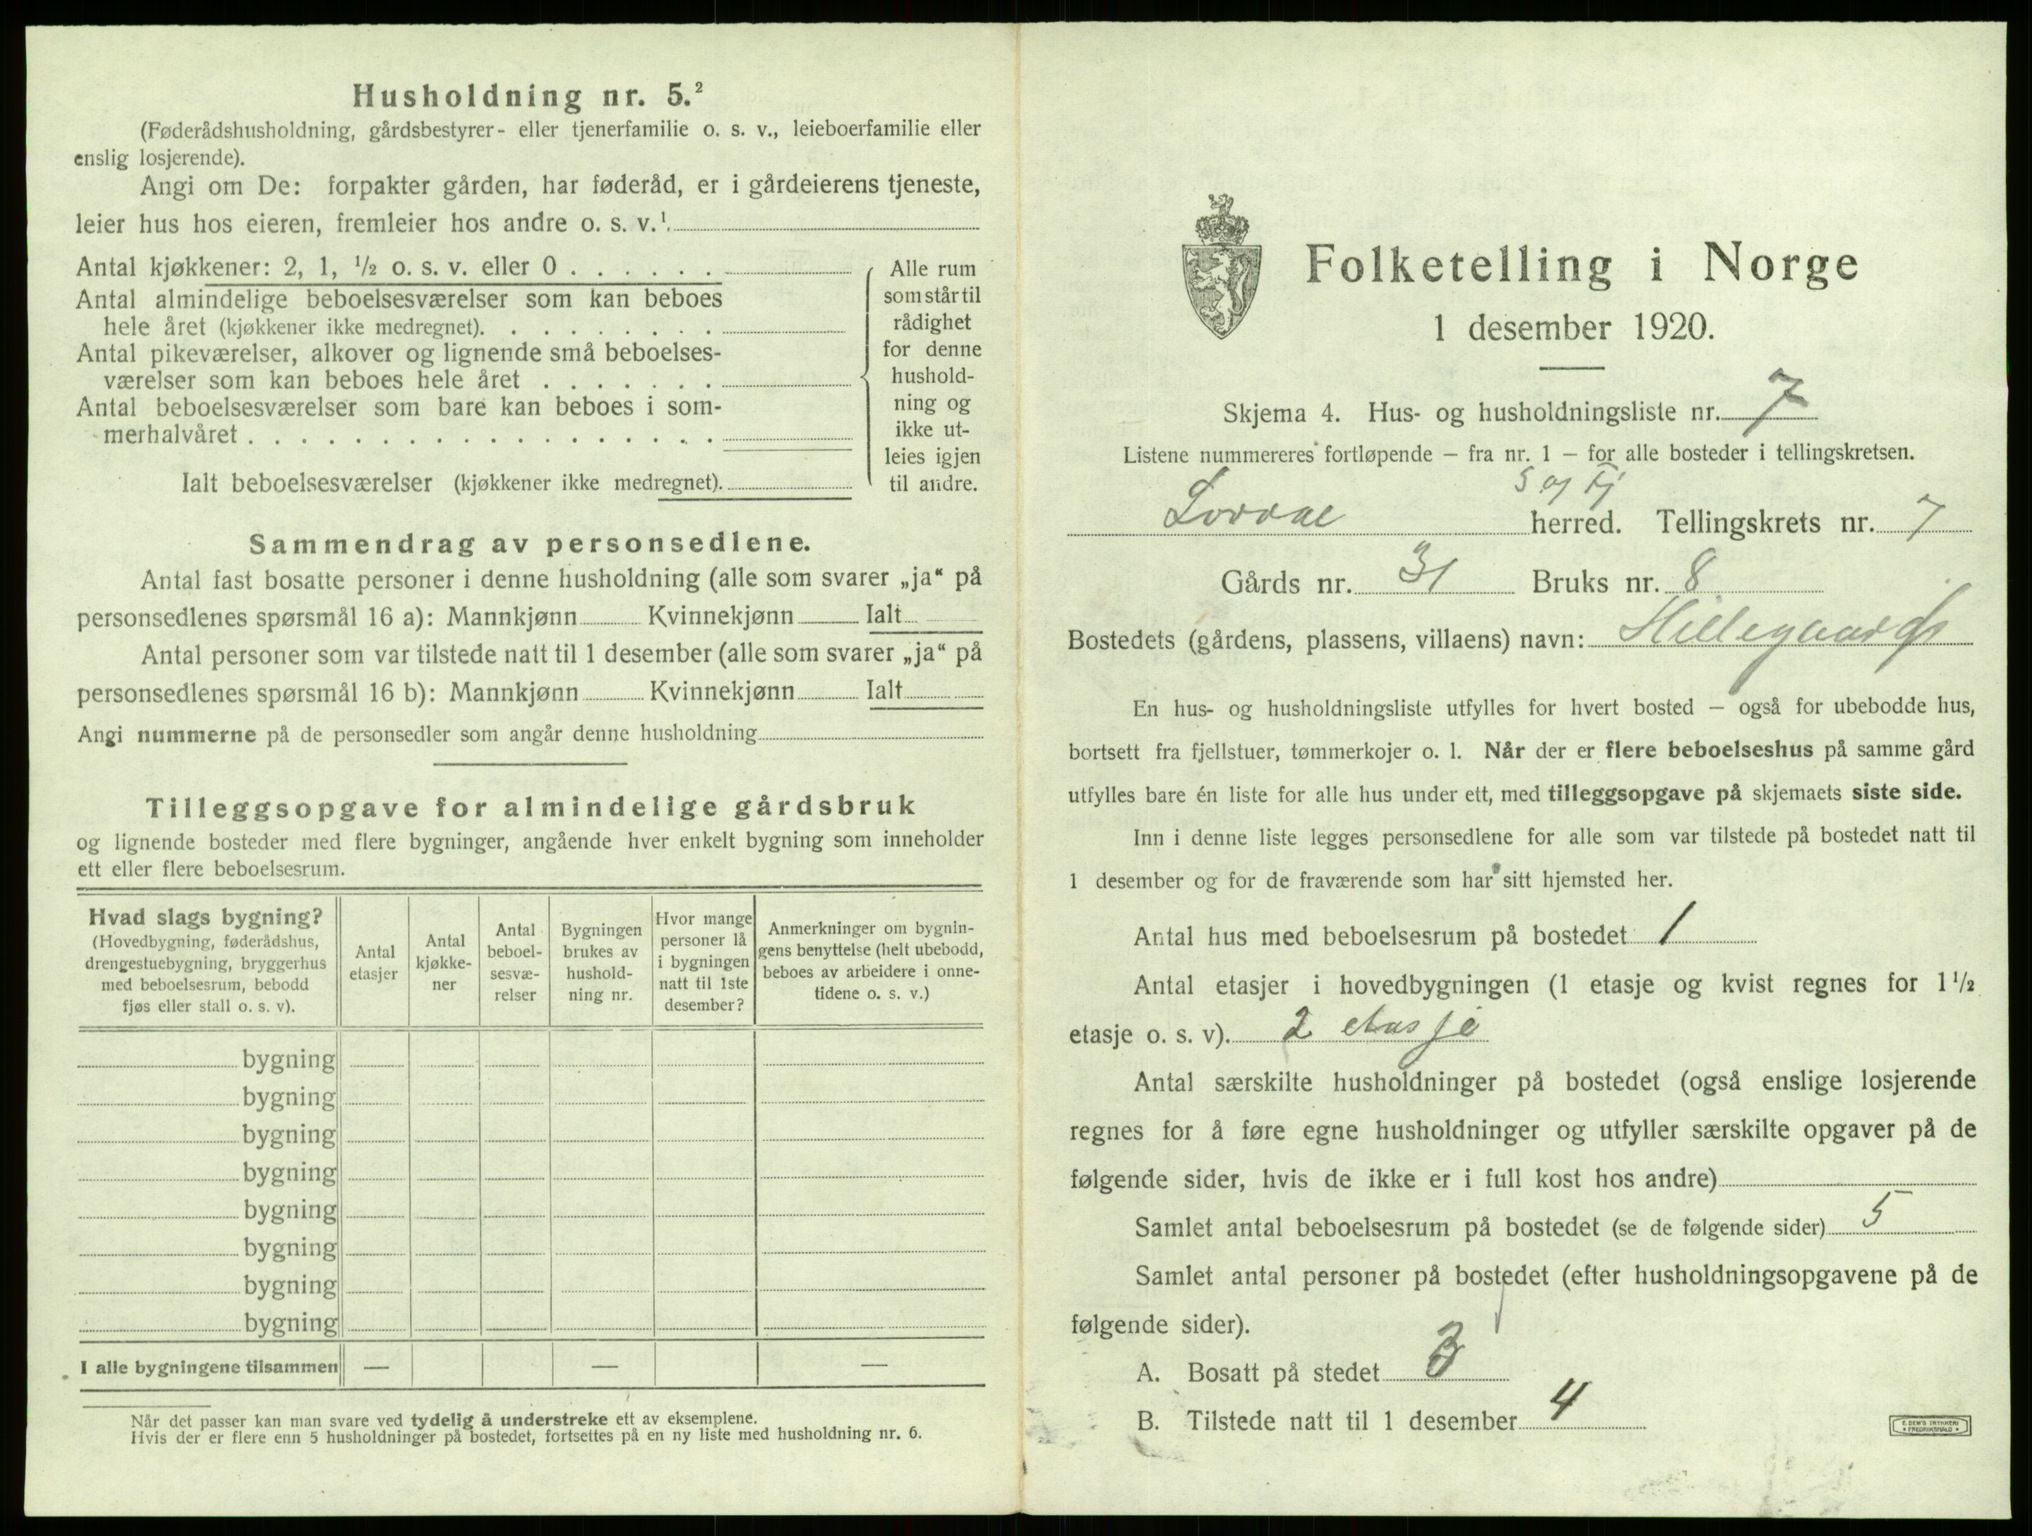 Husholdning nr. 5.²
(Føderådshusholdning, gårdsbestyrer- eller tjenerfamilie o. s. v., leieboerfamilie eller
enslig losjerende).
Angi om De: forpakter gården, har føderåd, er i gårdeierens tjeneste,
leier hus hos eieren, fremleier hos andre o. s. v.¹
Antal kjøkkener: 2, 1, ½ o. s. v. eller 0 . . . . . .
Antal almindelige beboelsesværelser som kan beboes
hele året (kjøkkener ikke medregnet). . . . . . . . .
Antal pikeværelser, alkover og lignende små beboelses-
værelser som kan beboes hele året . . . . . . .
Antal beboelsesværelser som bare kan beboes i som-
merhalvåret . . . . . . . . . . . . . . . . . .
Ialt beboelsesværelser (kjøkkener ikke medregnet).
Alle rum
som står til
rådighet
for denne
hushold-
ning og
ikke ut-
leies igjen
til andre.
Sammendrag av personsedlene.
Antal fast bosatte personer i denne husholdning (alle som svarer „ja“ på
personsedlenes spørsmål 16 a): Mannkjønn Kvinnekjønn Ialt
Antal personer som var tilstede natt til 1 desember (alle som svarer „ja“ på
personsedlenes spørsmål 16 b): Mannkjønn Kvinnekjønn Ialt
Angi nummerne på de personsedler som angår denne husholdning
Tilleggsopgave for almindelige gårdsbruk
og lignende bosteder med flere bygninger, angående hver enkelt bygning som inneholder
ett eller flere beboelsesrum.
Hvad slags bygning?
(Hovedbygning, føderådshus,
drengestuebygning, bryggerhus
med beboelsesrum, bebodd
fjøs eller stall o. s. v).
Antal
etasjer
Antal
kjøkke-
ner
Antal
beboel-
sesvæ-
relser
Bygningen
brukes av
hushold-
ning nr.
Hvor mange
personer lå
i bygningen
natt til 1ste
desember?
Anmerkninger om bygnin-
gens benyttelse (helt ubebodd,
beboes av arbeidere i onne-
tidene o. s. v.)
bygning
bygning
bygning
bygning
bygning
bygning
bygning
bygning
I alle bygningene tilsammen — — —
Når det passer kan man svare ved tydelig å understreke ett av eksemplene.
Hvis der er flere enn 5 husholdninger på bostedet, fortsettes på en ny liste med husholdning nr. 6.
Folketelling i Norge
1 desember 1920.
Skjema 4. Hus- og husholdningsliste nr. 7
Listene nummereres fortløpende – fra nr. 1 – for alle bosteder i tellingskretsen.
S og Fj
herred. Tellingskrets nr. 7
Gårds nr. 31 Bruks nr. 8
Bostedets (gårdens, plassens, villaens) navn:
En hus- og husholdningsliste utfylles for hvert bosted – også for ubebodde hus,
bortsett fra fjellstuer, tømmerkojer o. l. Når der er flere beboelseshus på samme gård
utfylles bare én liste for alle hus under ett, med tilleggsopgave på skjemaets siste side.
Inn i denne liste legges personsedlene for alle som var tilstede på bostedet natt til
1 desember og for de fraværende som har sitt hjemsted her.
Antal hus med beboelsesrum på bostedet 1
Antal etasjer i hovedbygningen (1 etasje og kvist regnes for 1½
etasje o. s. v). 2 etasje
Antal særskilte husholdninger på bostedet (også enslige losjerende
regnes for å føre egne husholdninger og utfyller særskilte opgaver på de
følgende sider, hvis de ikke er i full kost hos andre)
Samlet antal beboelsesrum på bostedet (se de følgende sider) 5
Samlet antal personer på bostedet (efter husholdningsopgavene på de
følgende sider).
A. Bosatt på stedet 3
B. Tilstede natt til 1 desember 4
E. DEWS TRYKKERI
• FREDRIKSHALD •